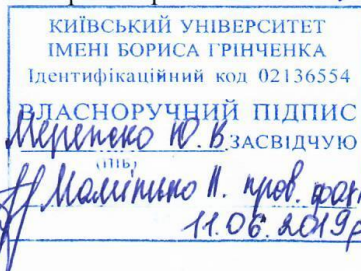 КИЇВСЬКИЙ УНІВЕРСИТЕТ
ІМЕНІ БОРИСА ГРІНЧЕНКА
Ідентифікаційний код 02136554
ВЛАСНОРУЧНИЙ ПІДПИС
Ю. В. ЗАСВІДЧУЮ
(ПІБ)
Н. пров. фах
11.06.2019р